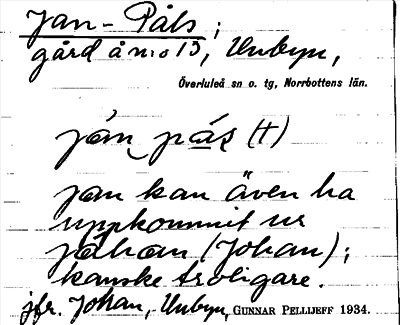 Jan-Påls;
gård å n:o 13, Unbyn,
Överluleå sn o. tg, Norrbottens län.
ján pás (†)
jan kan även ha
uppkommit ur
jåhan (Johan);
kanske troligare.
jfr. Johan, Unbyn, GUNNAR PELLIJEFF 1934.